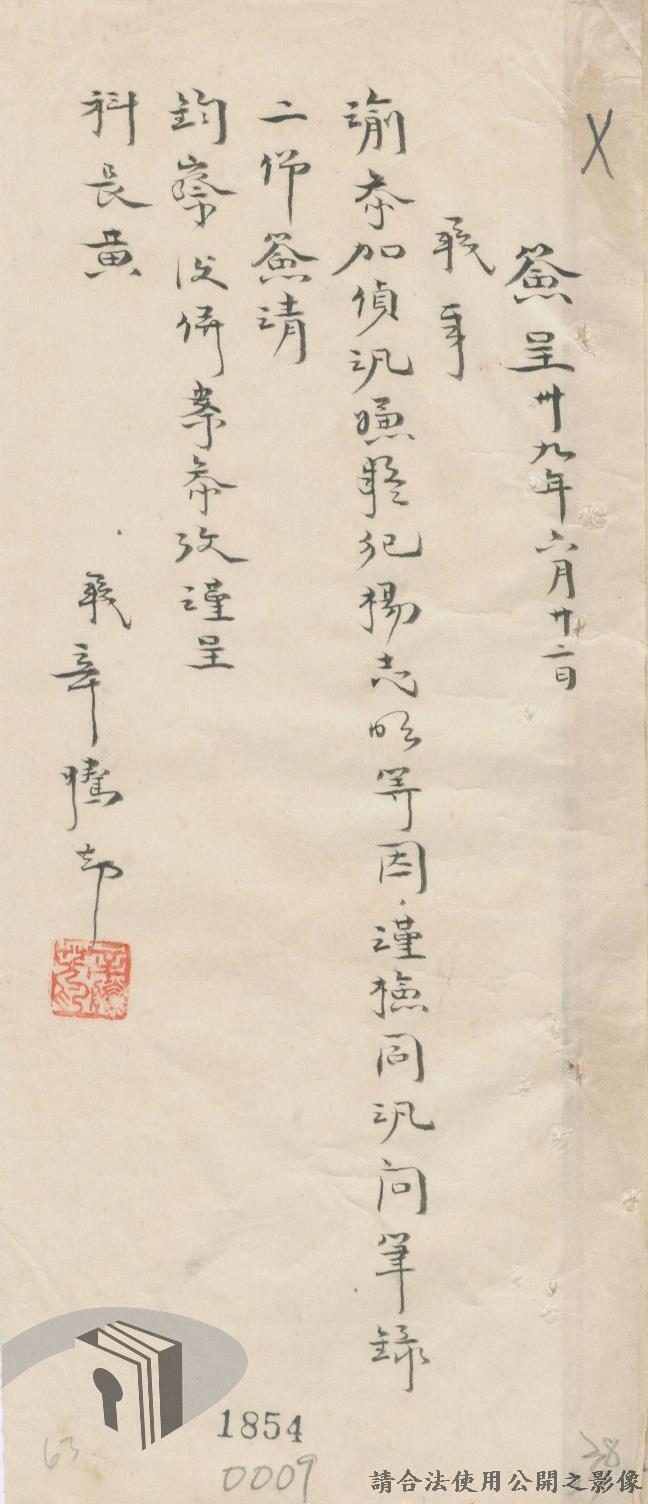 簽呈卅九年六月廿二日
職奉
諭參加偵訊嫌疑犯楊志昭等因謹檢同訊問筆錄
二份簽請
鈞察後併案參攷謹呈
科長黃
職辛騰
1854
0009
63
38
請合法使用公開之影像